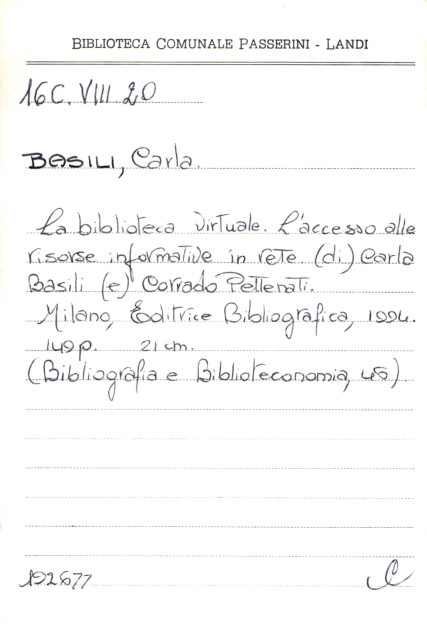 BIBLIOTECA COMUNALE PASSERINI - LANDI
16C. VIII 20
BASILI, Carla.
La biblioteca virtuale. L'accesso alle
risorse informative in rete (di) Carla
Basili (e) Corrado Pettenati.
Milano, Editrice Bibliografica, 1994.
149 p. 21 cm.
(Bibliografia e Biblioteconomia, 46)
192677